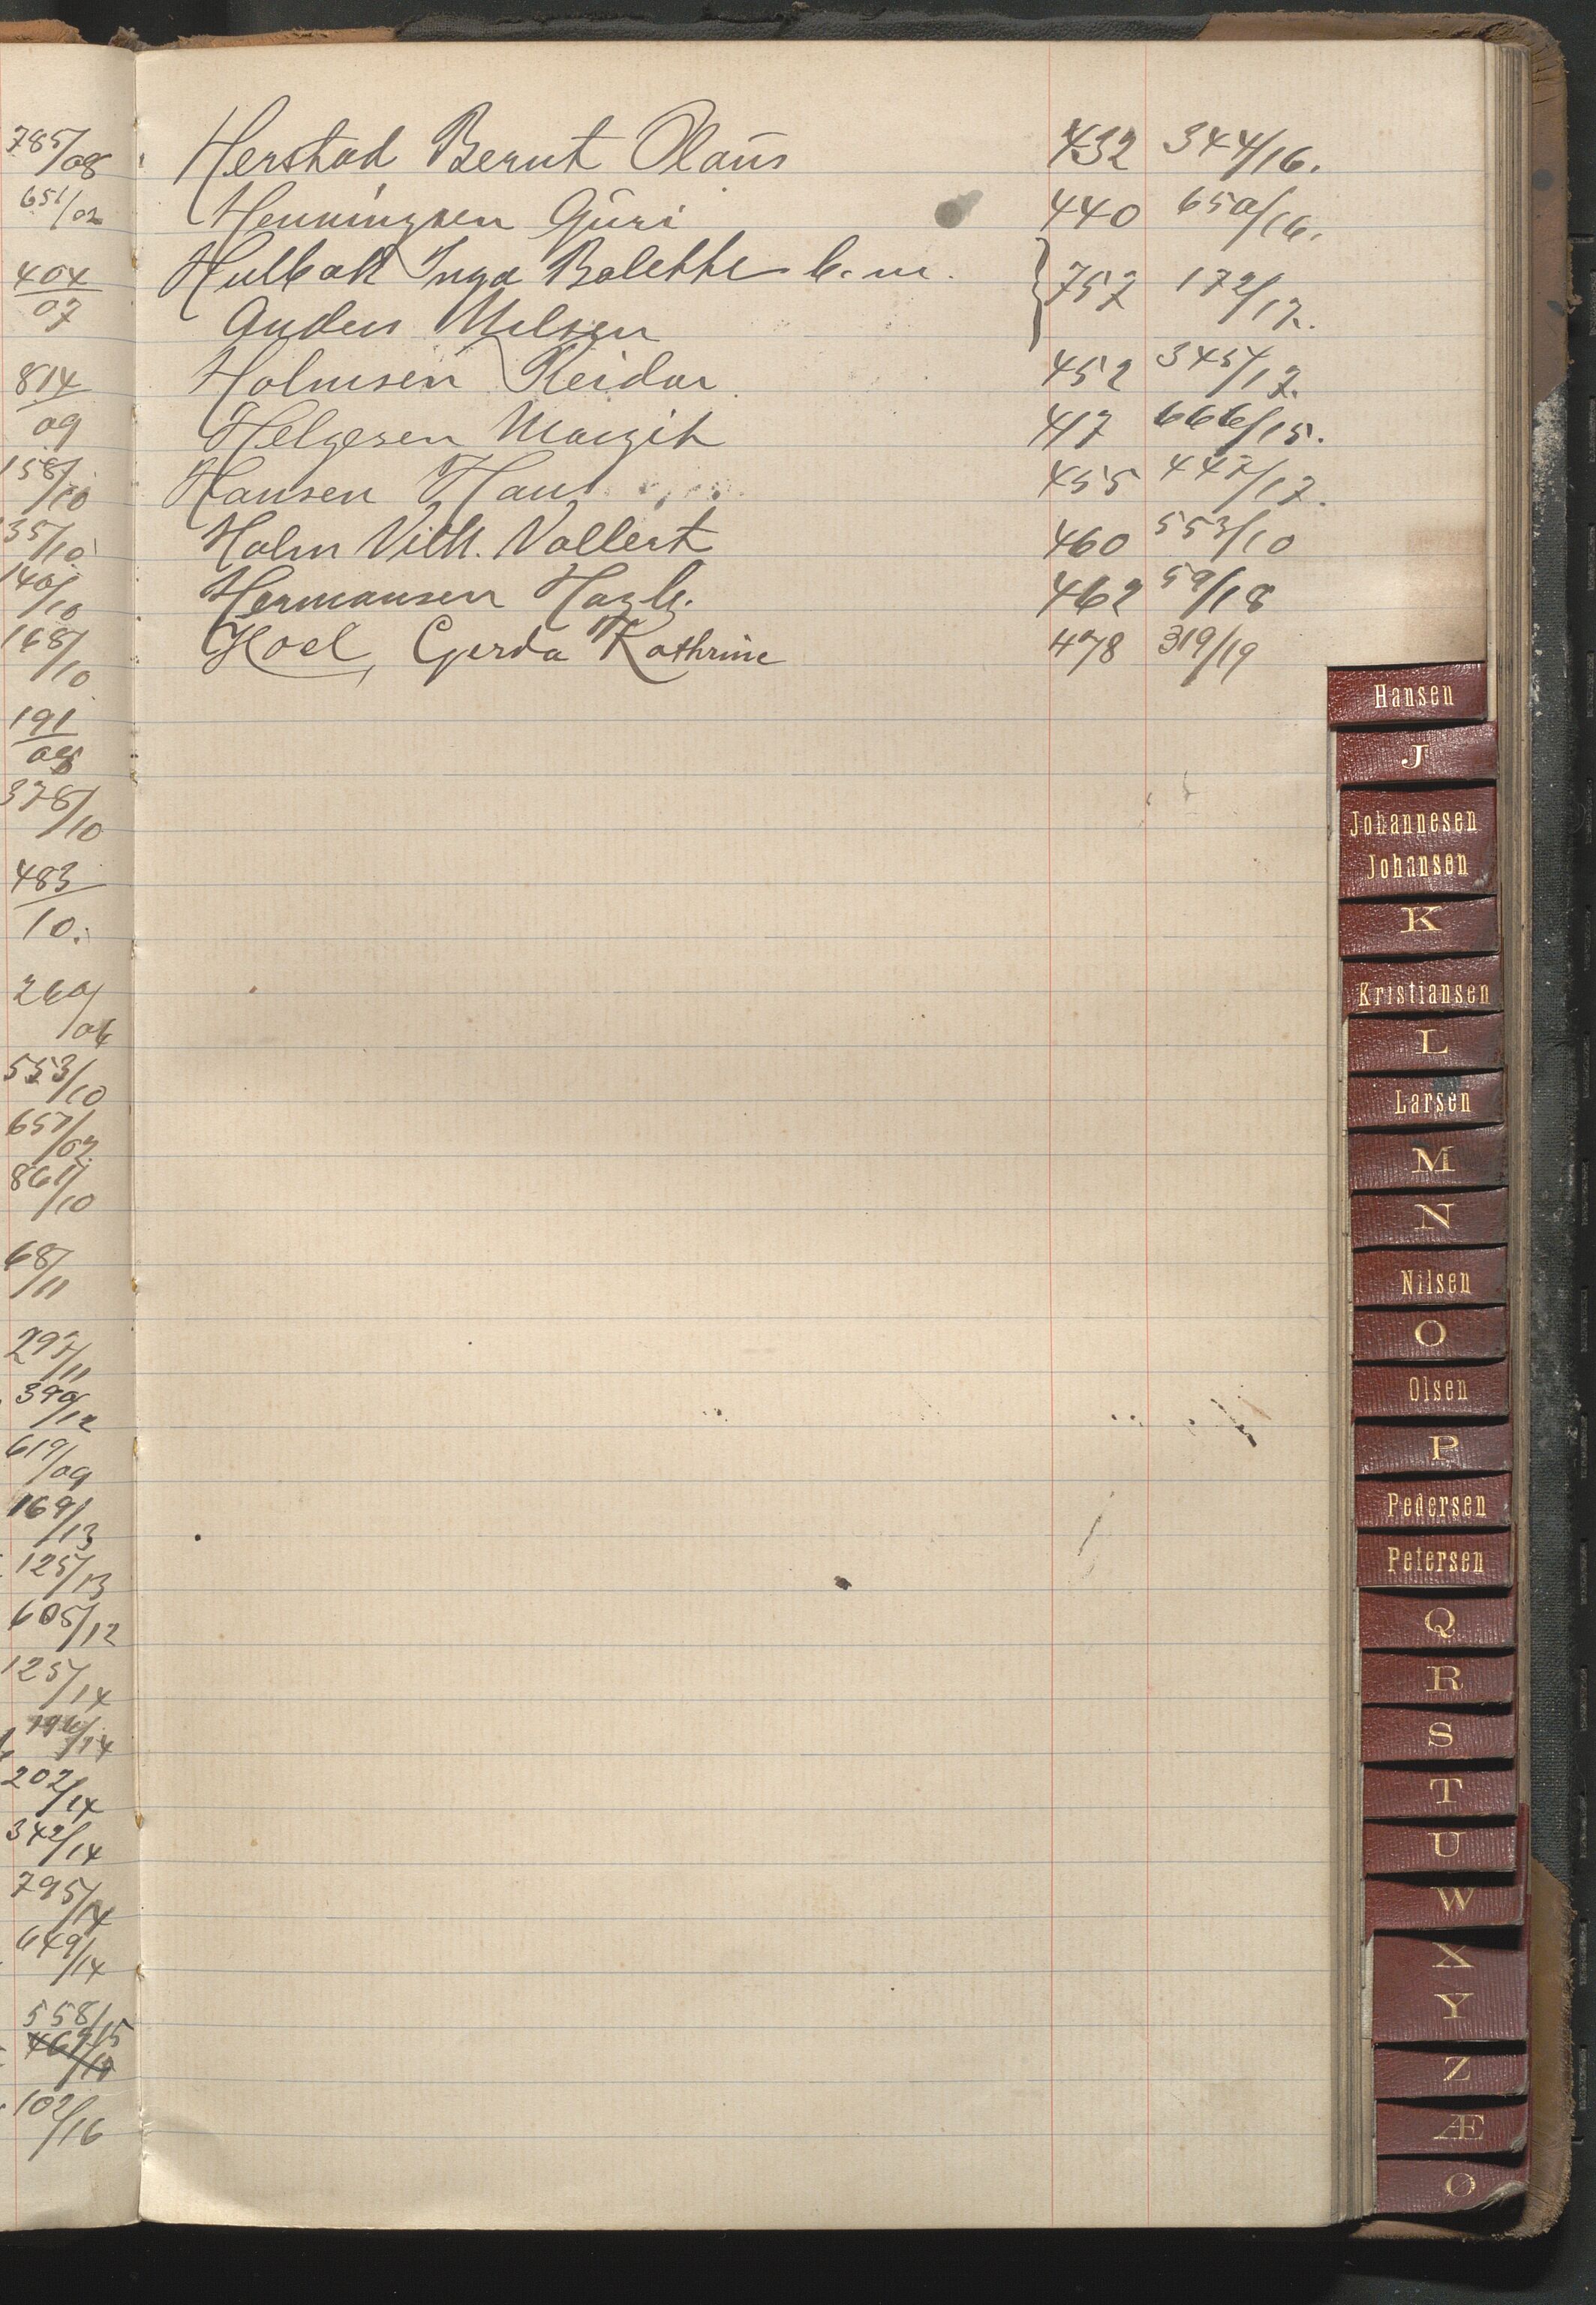 785/08
651/02
404/07
814/09
158/10
35/10
140/10
168/10
191/08
378/10
483/10.
260/06
553/10
657/07
861/10
68/11
297/11
390/12
619/09
169/13
125/13
605/12
125/14
196/14
202/14
342/14
795/14
649/14
558/15
102/16
Herstad Bernt Olaus 432 344/16.
Henningsen Guri 440 650/16.
Hulbak Inga Bolethe b. m. 757 172/17.
Anders Nilsen
Holmsen Reidar 452 345/17.
Helgesen Margit 417 666/15.
Hansen Hans 455 447/17.
Holm Vilh. Vollert 460 553/10
Hermansen Hagb. 462 59/18
Hoel, Gerda Kathrine 478 319/19
Hansen
J
Johannesen
Johansen
K
Kristiansen
L
Larsen
M
N
Nilsen
O
Olsen
P
Pedersen
Petersen
Q
R
S
T
U
W
X
Y
Z
Æ
Ø